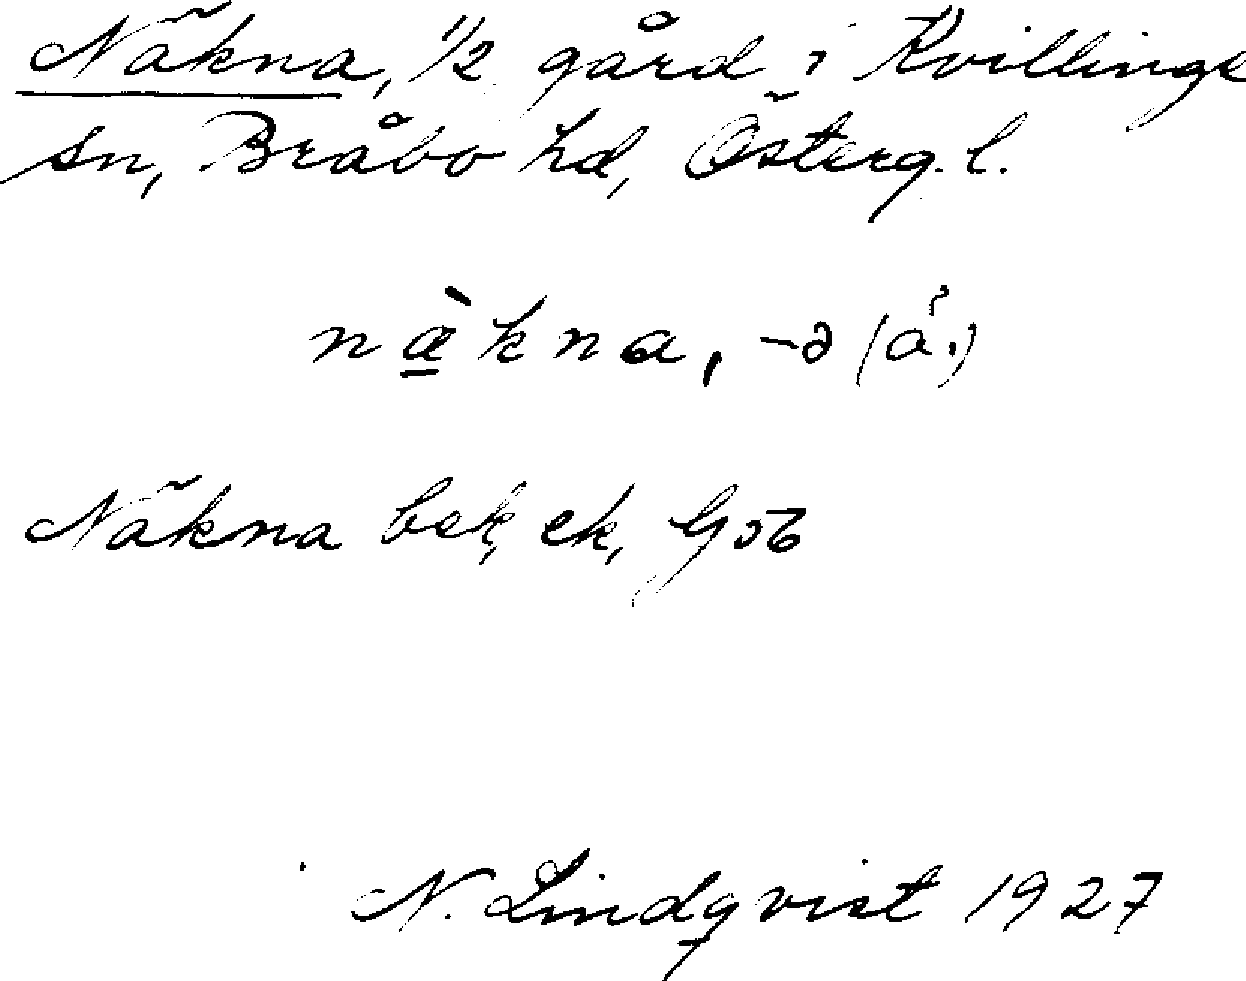 Näkna, 1/2 gård i Kvillinge
sn, Bråbo hd, Österg. l.
næ̀kna, -ə (å.)
Näkna bek, ek, Gob
N. Lindqvist 1927